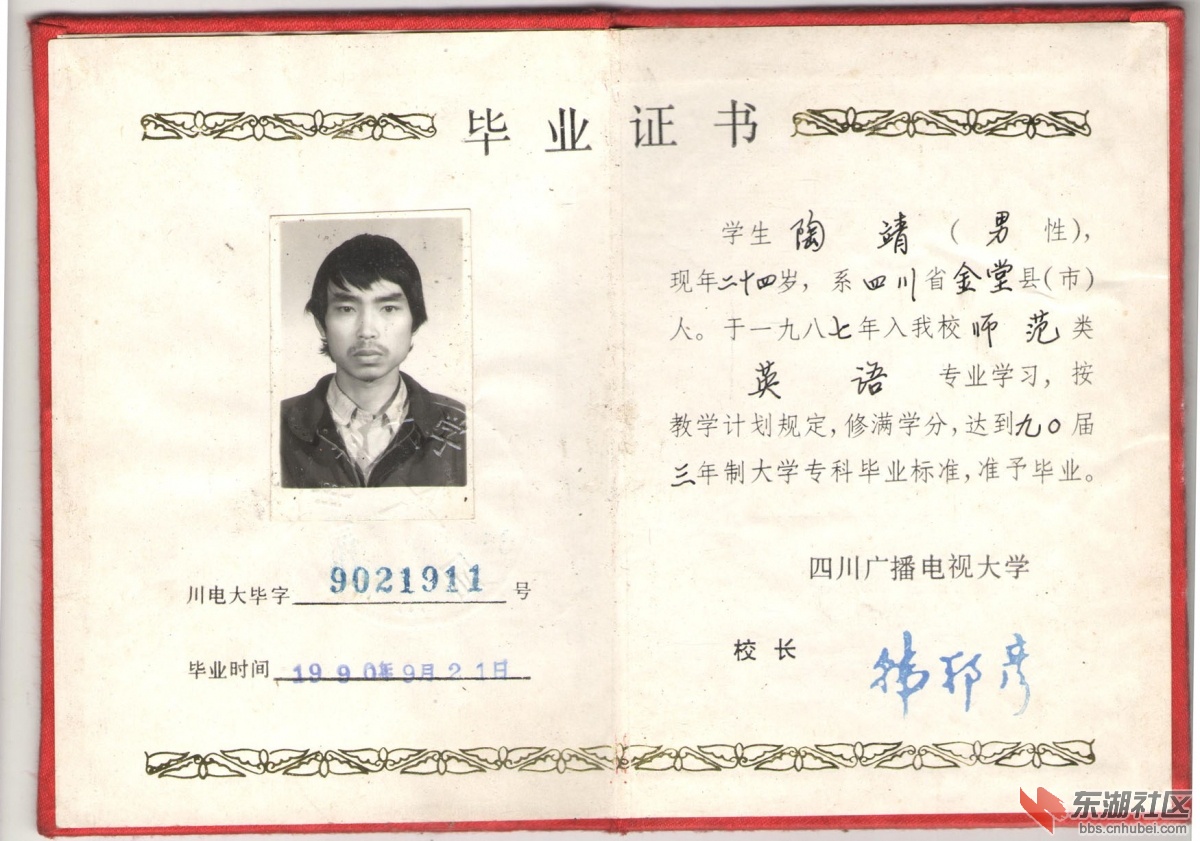 毕业证书
学生 陶 靖 (男 性),
现年二十四岁, 系四川省金堂县(市)
人。于一九八七年入我校师范类
英 语 专业学习, 按
教学计划规定, 修满学分, 达到九〇届
三年制大学专科毕业标准, 准予毕业。
四川广播电视大学
校长 韩邦彦
川电大毕字 9021911 号
毕业时间 1990年9月21日
东湖社区
bbs.cnhubei.com